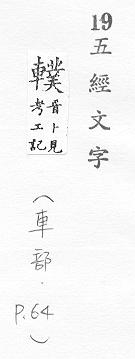 19五經文字
轐
音卜見
考工記
(車部.
P.64)